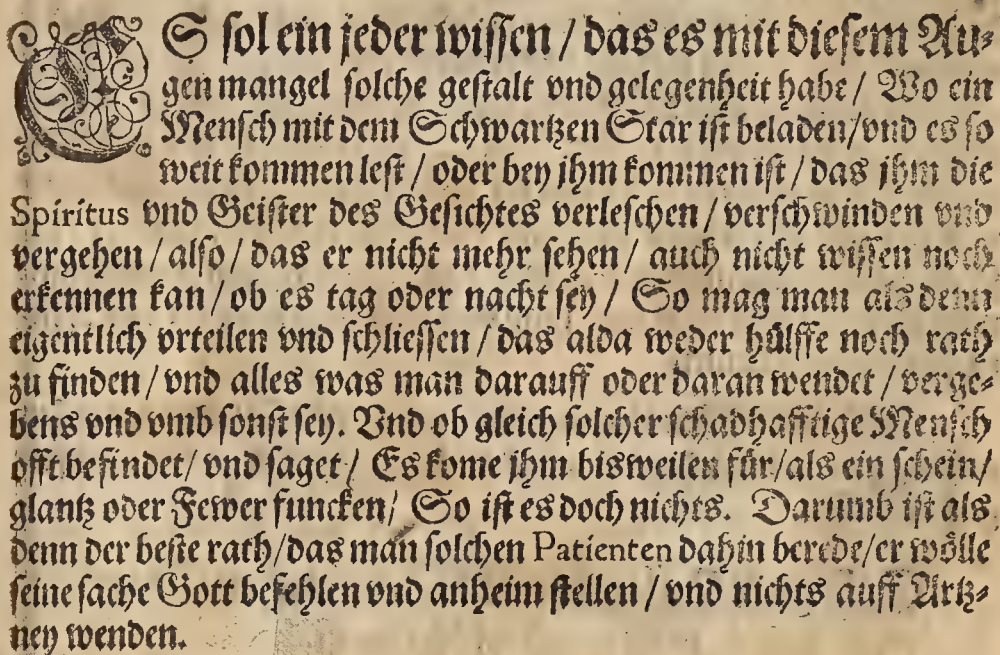 ES sol ein jeder wissen / das es mit diesem Au⸗
gen mangel solche gestalt vnd gelegenheit habe / Wo ein
Mensch mit dem Schwartzen Star ist beladen/vnd es so
weit kommen lest / oder bey jhm kommen ist / das jhm die
Spiritus vnd Geister des Gesichtes verleschen / verschwinden vnd
vergehen / also / das er nicht mehr sehen / auch nicht wissen noch
erkennen kan / ob es tag oder nacht sey / So mag man als denn
eigentlich vrteilen vnd schliessen / das alda weder hülffe noch rath
zu finden / vnd alles was man darauff oder daran wendet / verge⸗
bens vnd vmb sonst sey. Vnd ob gleich solcher schadhafftige Mensch
offt befindet/ vnd saget / Es kome jhm bisweilen für/als ein schein/
glantz oder Fewer funcken/ So ist es doch nichts. Darumb ist als
denn der beste rath/das man solchen Patienten dahin berede/er wölle
seine sache Gott befehlen vnd anheim stellen / vnd nichts auff Artz⸗
ney wenden.